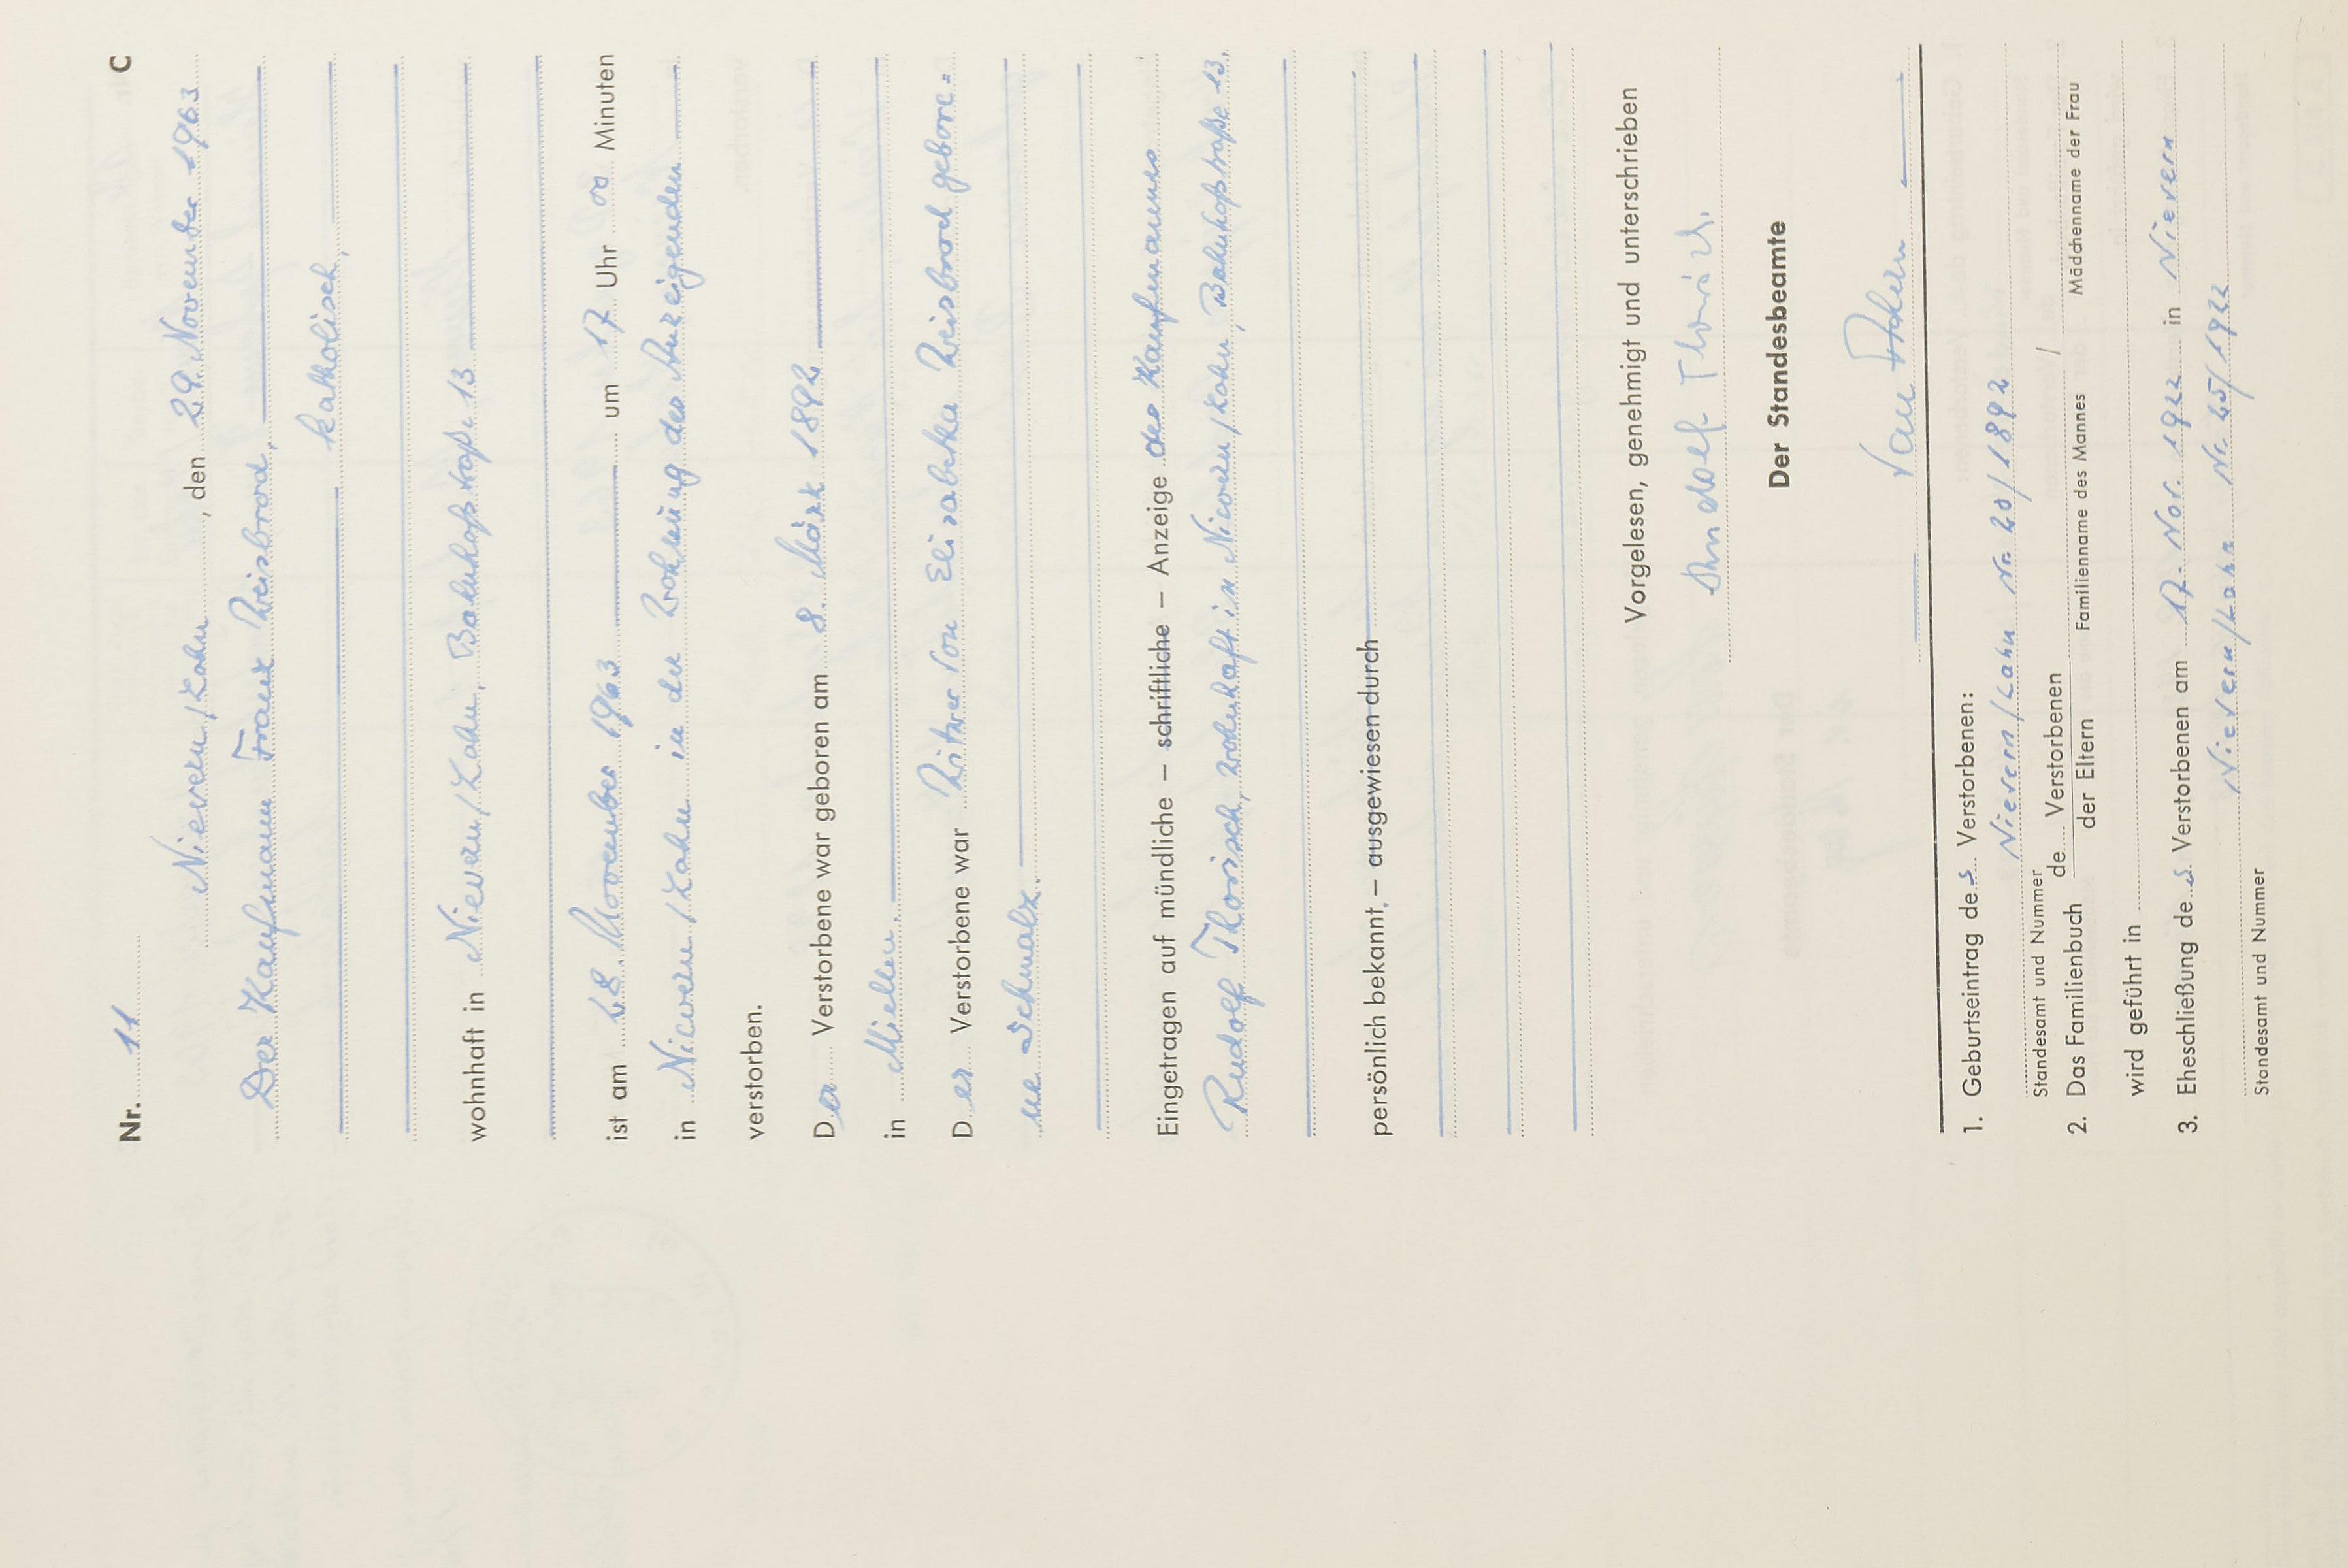 Nr. 11 C
Nievern/Lahn, den 29. November 1963
Der Kaufmann Franz Weisbrod,
katholisch,
wohnhaft in Nievern/Lahn, Bahnhofstraße 13
ist am 28. November 1963 um 17 Uhr 00 Minuten
in Nievern/Lahn in der Wohnung des Anzeigenden
verstorben.
Der Verstorbene war geboren am 8. März 1892
in Miellen.
Der Verstorbene war Witwer von Elisabetha Weisbrod gebore=
ne Schmalz.
Eingetragen auf mündliche – schriftliche – Anzeige des Kaufmanns
Rudolf Thorisch, wohnhaft in Nievern/Lahn, Bahnhofstraße 13.
persönlich bekannt, – ausgewiesen durch
Vorgelesen, genehmigt und unterschrieben
Rudolf Thorisch.
Der Standesbeamte
1. Geburtseintrag des Verstorbenen:
Nievern/Lahn Nr. 20/1892
Standesamt und Nummer
2. Das Familienbuch de Verstorbenen /
der Eltern Familienname des Mannes Mädchenname der Frau
wird geführt in
3. Eheschließung des Verstorbenen am 17. Nov. 1922 in Nievern
Nievern/Lahn Nr. 25/1922
Standesamt und Nummer